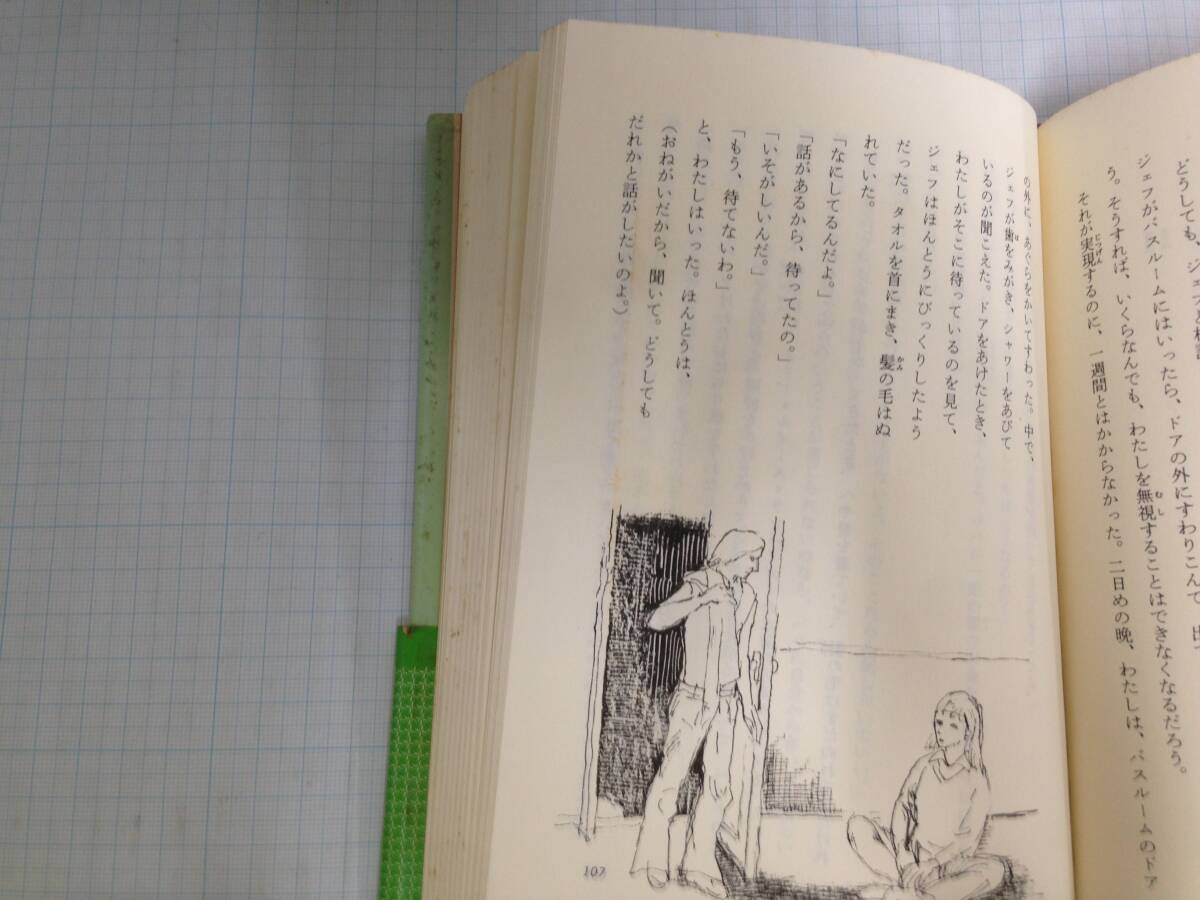 どうしても、ジェフと
ジェフがバスルームにはいったら、ドアの外にすわりこんで、
う。そうすれば、いくらなんでも、わたしを無視することはできなくなるだろう。
それが実現するのに、一週間とはかからなかった。二日めの晩、わたしは、バスルームのドア
の外に、あぐらをかいてすわった。中で、
ジェフが歯をみがき、シャワーをあびて
いるのが聞こえた。ドアをあけたとき、
わたしがそこに待っているのを見て、
ジェフはほんとうにびっくりしたよう
だった。タオルを首にまき、髪の毛はぬ
れていた。
「なにしてるんだよ。」
「話があるから、待ってたの。」
「いそがしいんだ。」
「もう、待てないわ。」
と、わたしはいった。ほんとうは、
（おねがいだから、聞いて。どうしても
だれかと話がしたいのよ。）
107